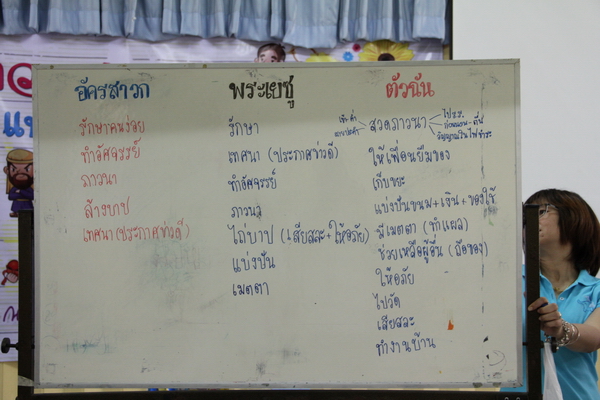 อัครสาวก
รักษาคนง่อย
ทำอัศจรรย์
ภาวนา
ล้างบาป
เทศนา (ประกาศข่าวดี)
พระเยซู
รักษา
เทศนา (ประกาศข่าวดี)
ทำอัศจรรย์
ภาวนา
ไถ่บาป (เสียสละ + ให้อภัย)
แบ่งปัน
เมตตา
ตัวฉัน
สวดภาวนา
ให้เพื่อนยืมของ
เก็บขยะ
แบ่งปันขนม + เงิน + ของใช้
มีเมตตา (ทำแผล)
ช่วยเหลือผู้อื่น (ถือของ)
ให้อภัย
ไปวัด
เสียสละ
ทำงานบ้าน